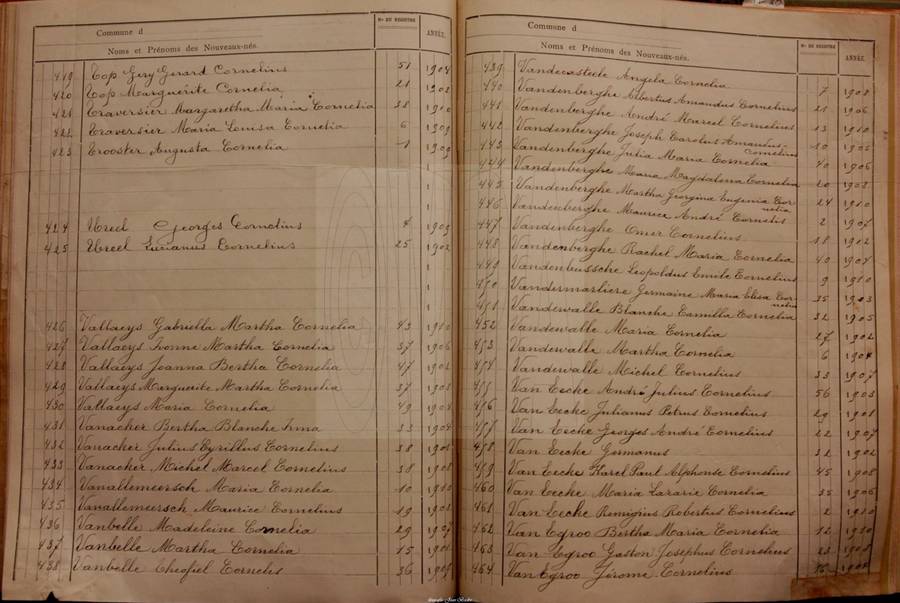 Commune d
Noms et Prénoms des Nouveaux-nés.
Nos DU REGISTRE
ANNÉE.
419 Top Gery Gerard Cornelius 51
420 Top Marguerite Cornelia 21
421 Traversier Margaretha Maria Cornelia 38 1910
422 Traversier Maria Louisa Cornelia 6 1909
423 Trooster Augusta Cornelia 1 1909
424 Ureel Georges Cornelius 4 1909
425 Ureel Lucianus Cornelius 25 1902
426 Vallaeys Gabriella Martha Cornelia 43 1910
427 Vallaeys Ivonne Martha Cornelia 37 1906
428 Vallaeys Joanna Bertha Cornelia 47 1902
429 Vallaeys Marguerite Martha Cornelia 37 1908
430 Vallaeys Maria Cornelia 49
431 Vanacker Bertha Blanche Irma 33 1904
432 Vanacker Julius Cyrillus Cornelius 38
433 Vanacker Michel Marcel Cornelius 38 1908
434 Vanallemeersch Maria Cornelia 10 1910
435 Vanallemeersch Maurice Cornelius 19 1902
436 Vanbelle Madeleine Cornelia 29 1907
437 Vanbelle Martha Cornelia 15
438 Vanbelle Theofiel Cornelis 36
Commune d
Noms et Prénoms des Nouveaux-nés.
Nos DU REGISTRE
ANNÉE.
439 Vandecasteele Angela Cornelia 7 1908
440 Vandenberghe Albertus Amandus Cornelius 21 1906
441 Vandenberghe André Marcel Cornelius 13 1910
442 Vandenberghe Joseph Carolus Amandus 10
Cornelius
443 Vandenberghe Julia Maria Cornelia 40 1906
444 Vandenberghe Maria Magdalena Cornelia 20
445 Vandenberghe Martha Georgina Eugenia Cor- 24 1910
nelia
446 Vandenberghe Maurice André Cornelis 2 1907
447 Vandenberghe Omer Cornelius 18 1902
448 Vandenberghe Rachel Maria Cornelia 40 1904
449 Vandenbussche Leopoldus Emile Cornelius 9 1910
450 Vandermarliere Germaine Maria Elisa Cor- 35 1903
nelia
451 Vandewalle Blanche Camilla Cornelia 32 1905
452 Vandewalle Maria Cornelia 27 1902
453 Vandewalle Martha Cornelia 6 1904
454 Vandewalle Michel Cornelius 33 1907
455 Van Eecke André Julius Cornelius 56
456 Van Eecke Julianus Petrus Cornelius 29
457 Van Eecke Georges André Cornelius 22 1907
458 Van Eecke Germanus 32 1902
459 Van Eecke Karel Paul Alphonse Cornelius 45 1908
460 Van Eecke Maria Lazarie Cornelia 35 1906
461 Van Eecke Remigius Robertus Cornelius 2 1910
462 Van Egroo Bertha Maria Cornelia 12 1910
463 Van Egroo Gaston Josephus Cornelius 23
464 Van Egroo Jérome Cornelius